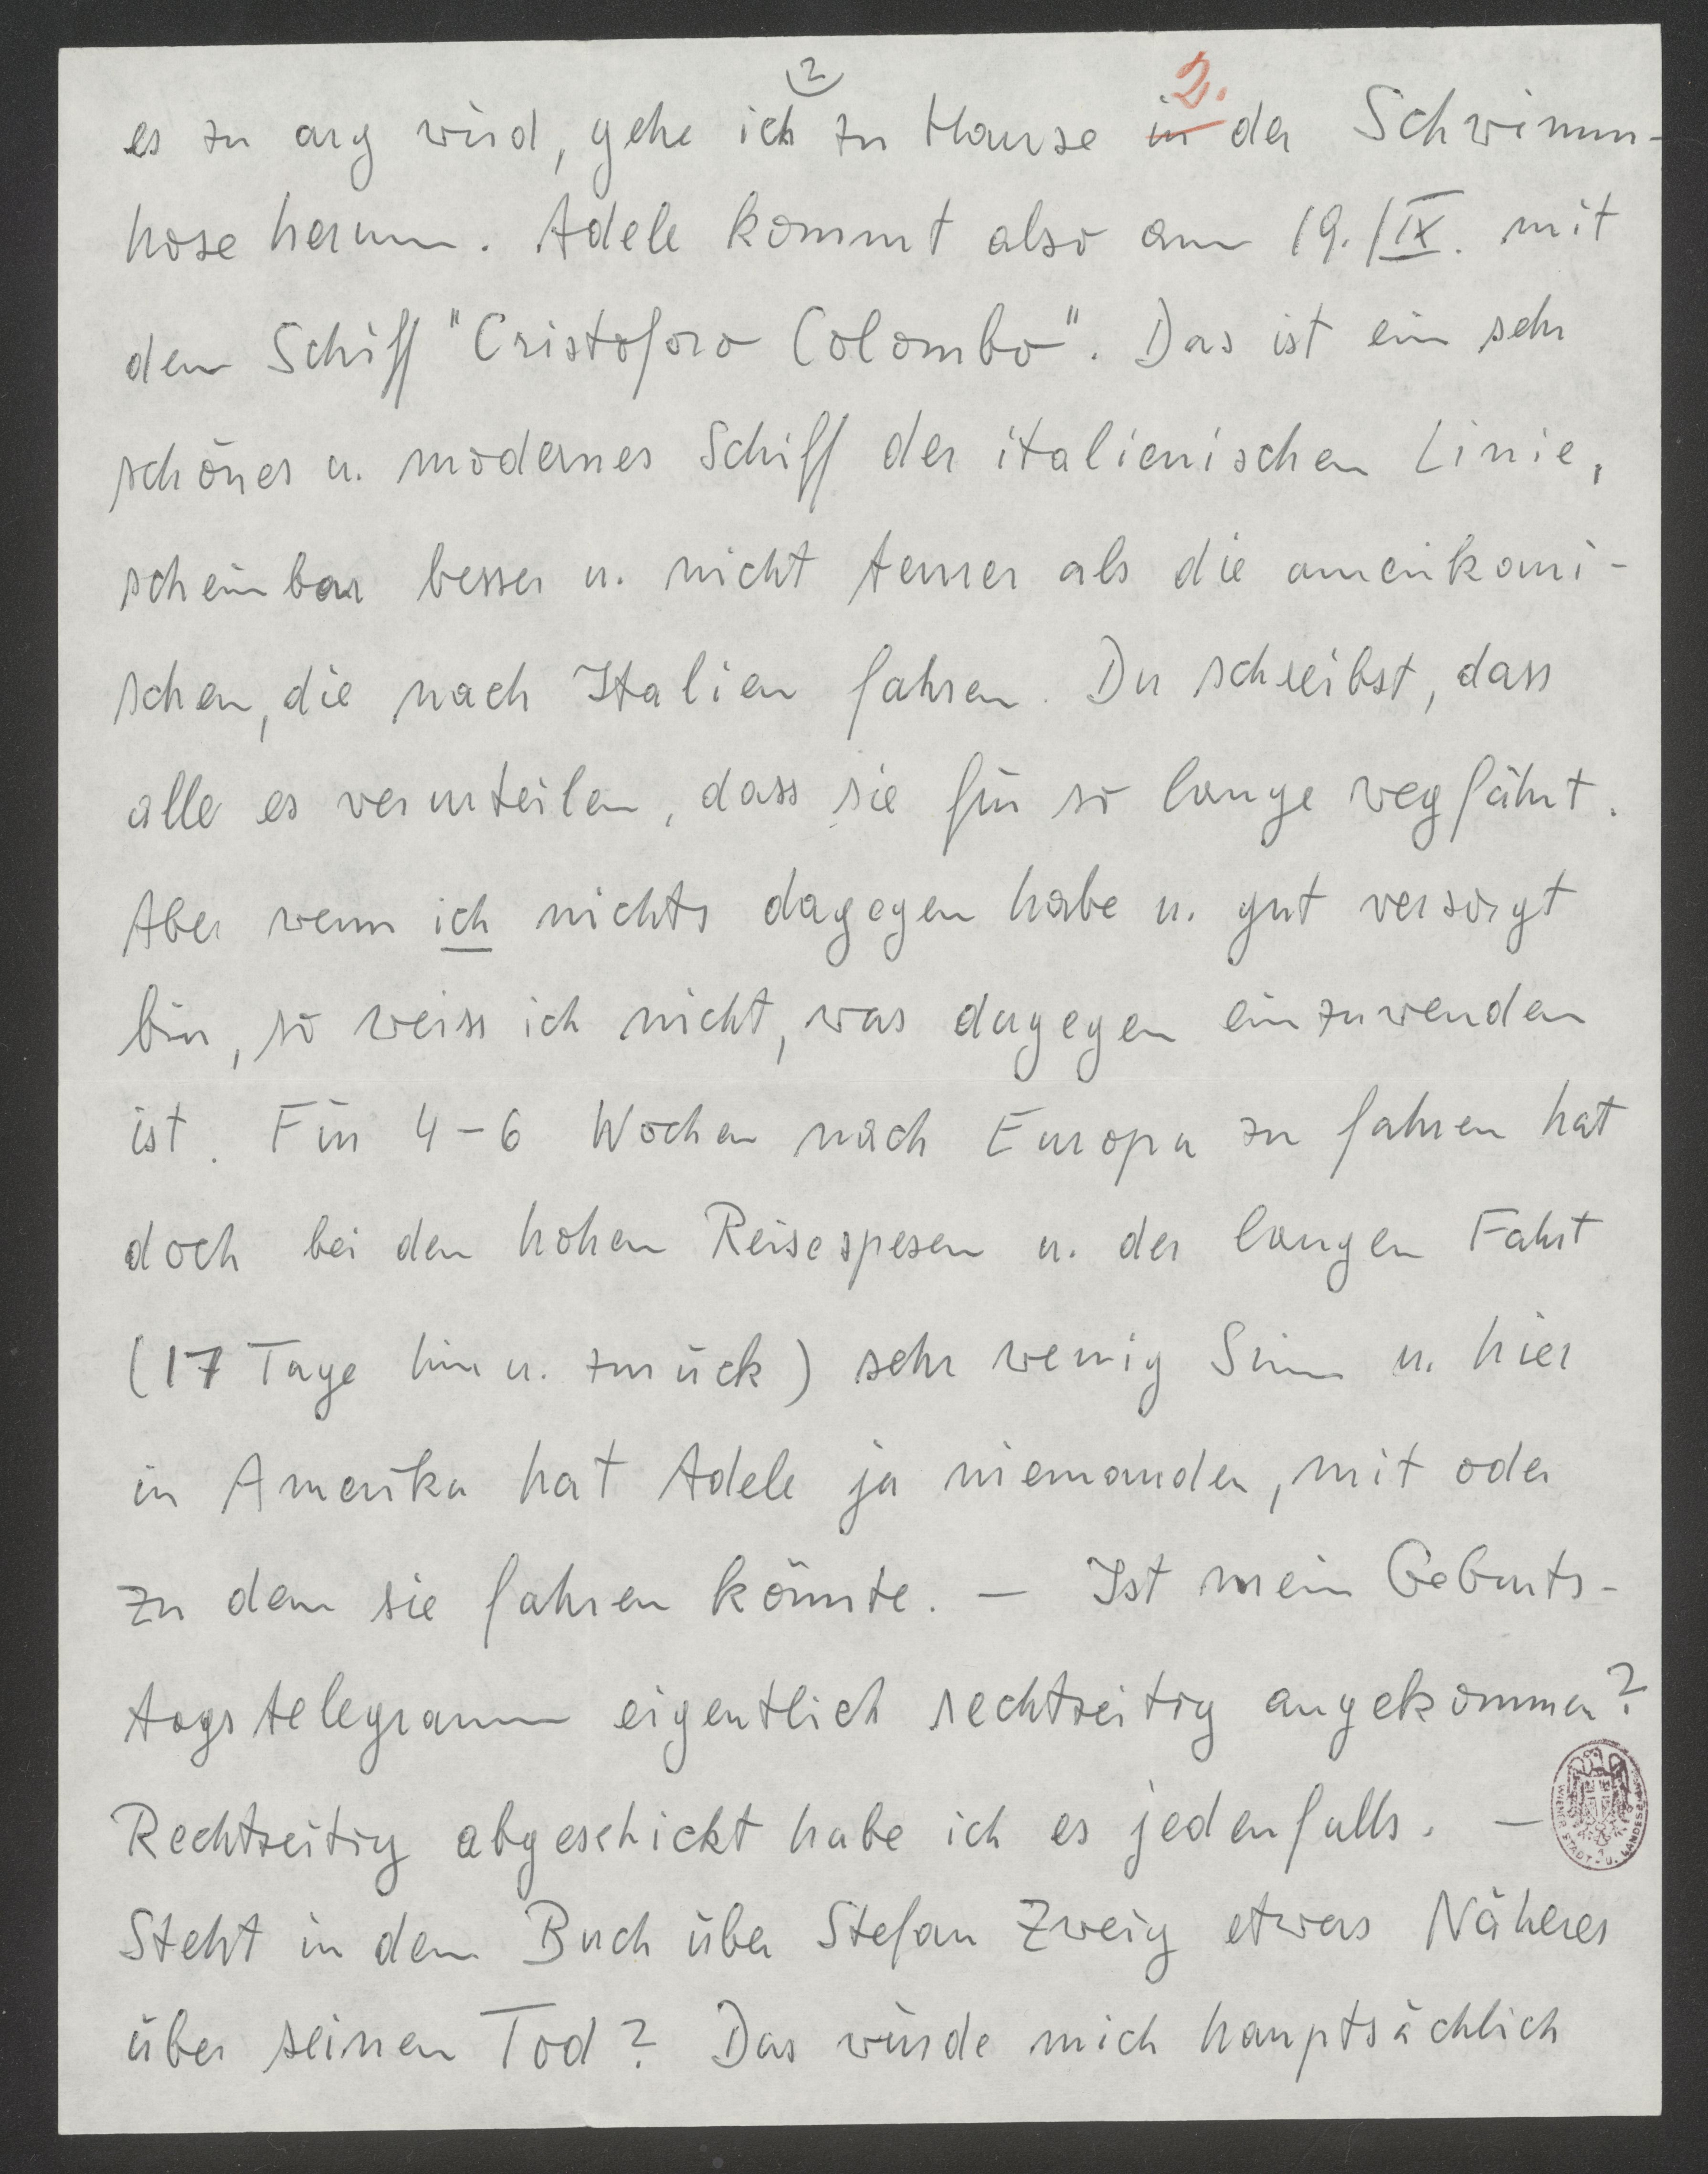 2
2.
es zu arg wird, gehe ich zu Hause in der Schwimm-
hose herum. Adele kommt also am 19./IX. mit
dem Schiff "Cristoforo Colombo". Das ist ein sehr
schönes u. modernes Schiff der italienischen Linie,
scheinbar besser u. nicht teurer als die amerikani-
schen, die nach Italien fahren. Du schreibst, dass
alle es verurteilen, dass sie für so lange wegfährt.
Aber wenn ich nichts dagegen habe u. gut versorgt
bin, so weiss ich nicht, was dagegen einzuwenden
ist. Für 4-6 Wochen nach Europa zu fahren hat
doch bei den hohen Reisespesen u. der langen Fahrt
(17 Tage hin u. zurück) sehr wenig Sinn u. hier
in Amerika hat Adele ja niemanden, mit oder
zu dem sie fahren könnte. – Ist mein Geburts-
tagstelegramm eigentlich rechtzeitig angekommen?
Rechtzeitig abgeschickt habe ich es jedenfalls. –
Steht in dem Buch über Stefan Zweig etwas Näheres
über seinen Tod? Das würde mich hauptsächlich
WIENER STADT- U. LANDES